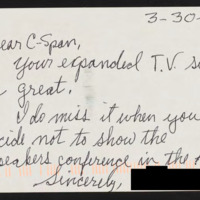 3-30-
ear C-Span,
Your expanded T.V. s
great,
I do miss it when you
cide not to show the
eakers conference in the
Sincerely,